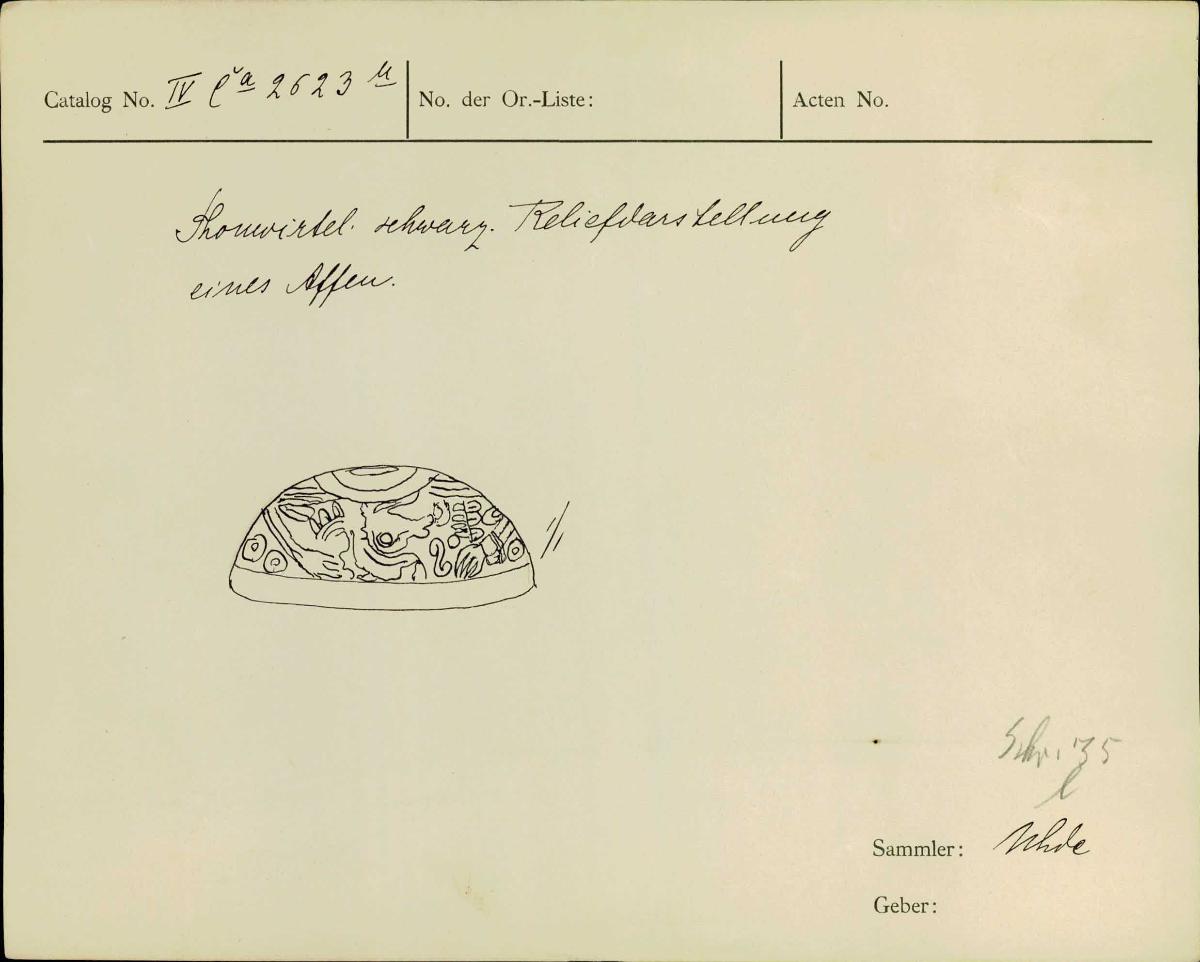 Catalog No. IV Ca 2623 u
No. der Or.-Liste:
Acten No.
Thonwirtel. schwarz. Reliefdarstellung
eines Affen.
1/1
Schr. 35
Sammler: Uhde
Geber: